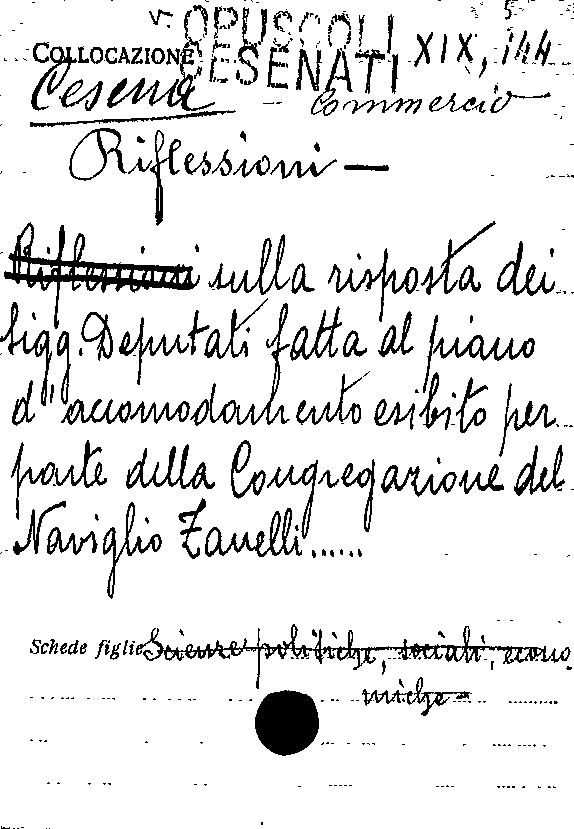 OPUSCOLI
CESENATI XIX, 144
COLLOCAZIONE
Cesena - Commercio
Riflessioni —
Riflessioni sulla risposta dei
Sigg. Deputati fatta al piano
d'accomodamento esibito per
parte della Congregazione del
Naviglio Zanelli......
Schede figlie Scienze politiche, sociali, econo
miche -